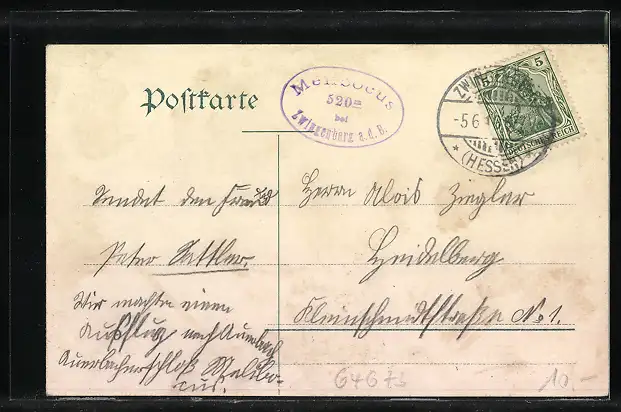 Postkarte
Melibocus
520m
bei
Zwingenberg a.d.B.
5
DEUTSCHES REICH
ZWINGENBERG
-5.6
* (HESSEN)
Sendet dein Freund
Peter Sattler.
Wir machten einen
Ausflug nach Auerbach
Auerbacherschloß Melibo-
cus.
Herrn Alois Ziegler
Heidelberg
Kleinschmidtstraße No 1.
64673
10.-